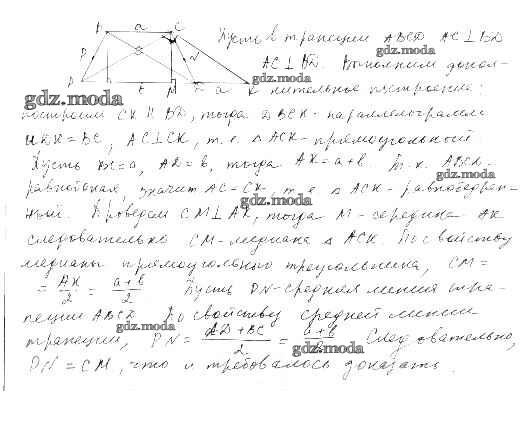 B a C Пусть в трапеции ABCD AC⊥BD
P N AC⊥BD. Выполним допол-
A b M D a K нительное построение:
gdz.moda
gdz.moda
gdz.moda
построим CK ∥ BD, тогда DBCK - параллелограмм
и DK = BC, AC⊥CK, т.е. △ACK - прямоугольный
Пусть BC = a, AD = b, тогда AK = a+b. Т.к. ABCD -
gdz.moda
равнобокая, значит AC = CK, т.е. △ACK - равнобедрен-
ный. Проведем CM⊥AK, тогда M - середина AK
следовательно CM - медиана △ACK. По свойству
медианы прямоугольного треугольника, CM =
= AK/2 = a+b/2 Пусть PN - средняя линия тра-
пеции ABCD По свойству средней линии
gdz.moda
gdz.moda
трапеции, PN = AD+BC/2 = a+b/2 Следовательно,
gdz.moda
PN = CM, что и требовалось доказать.